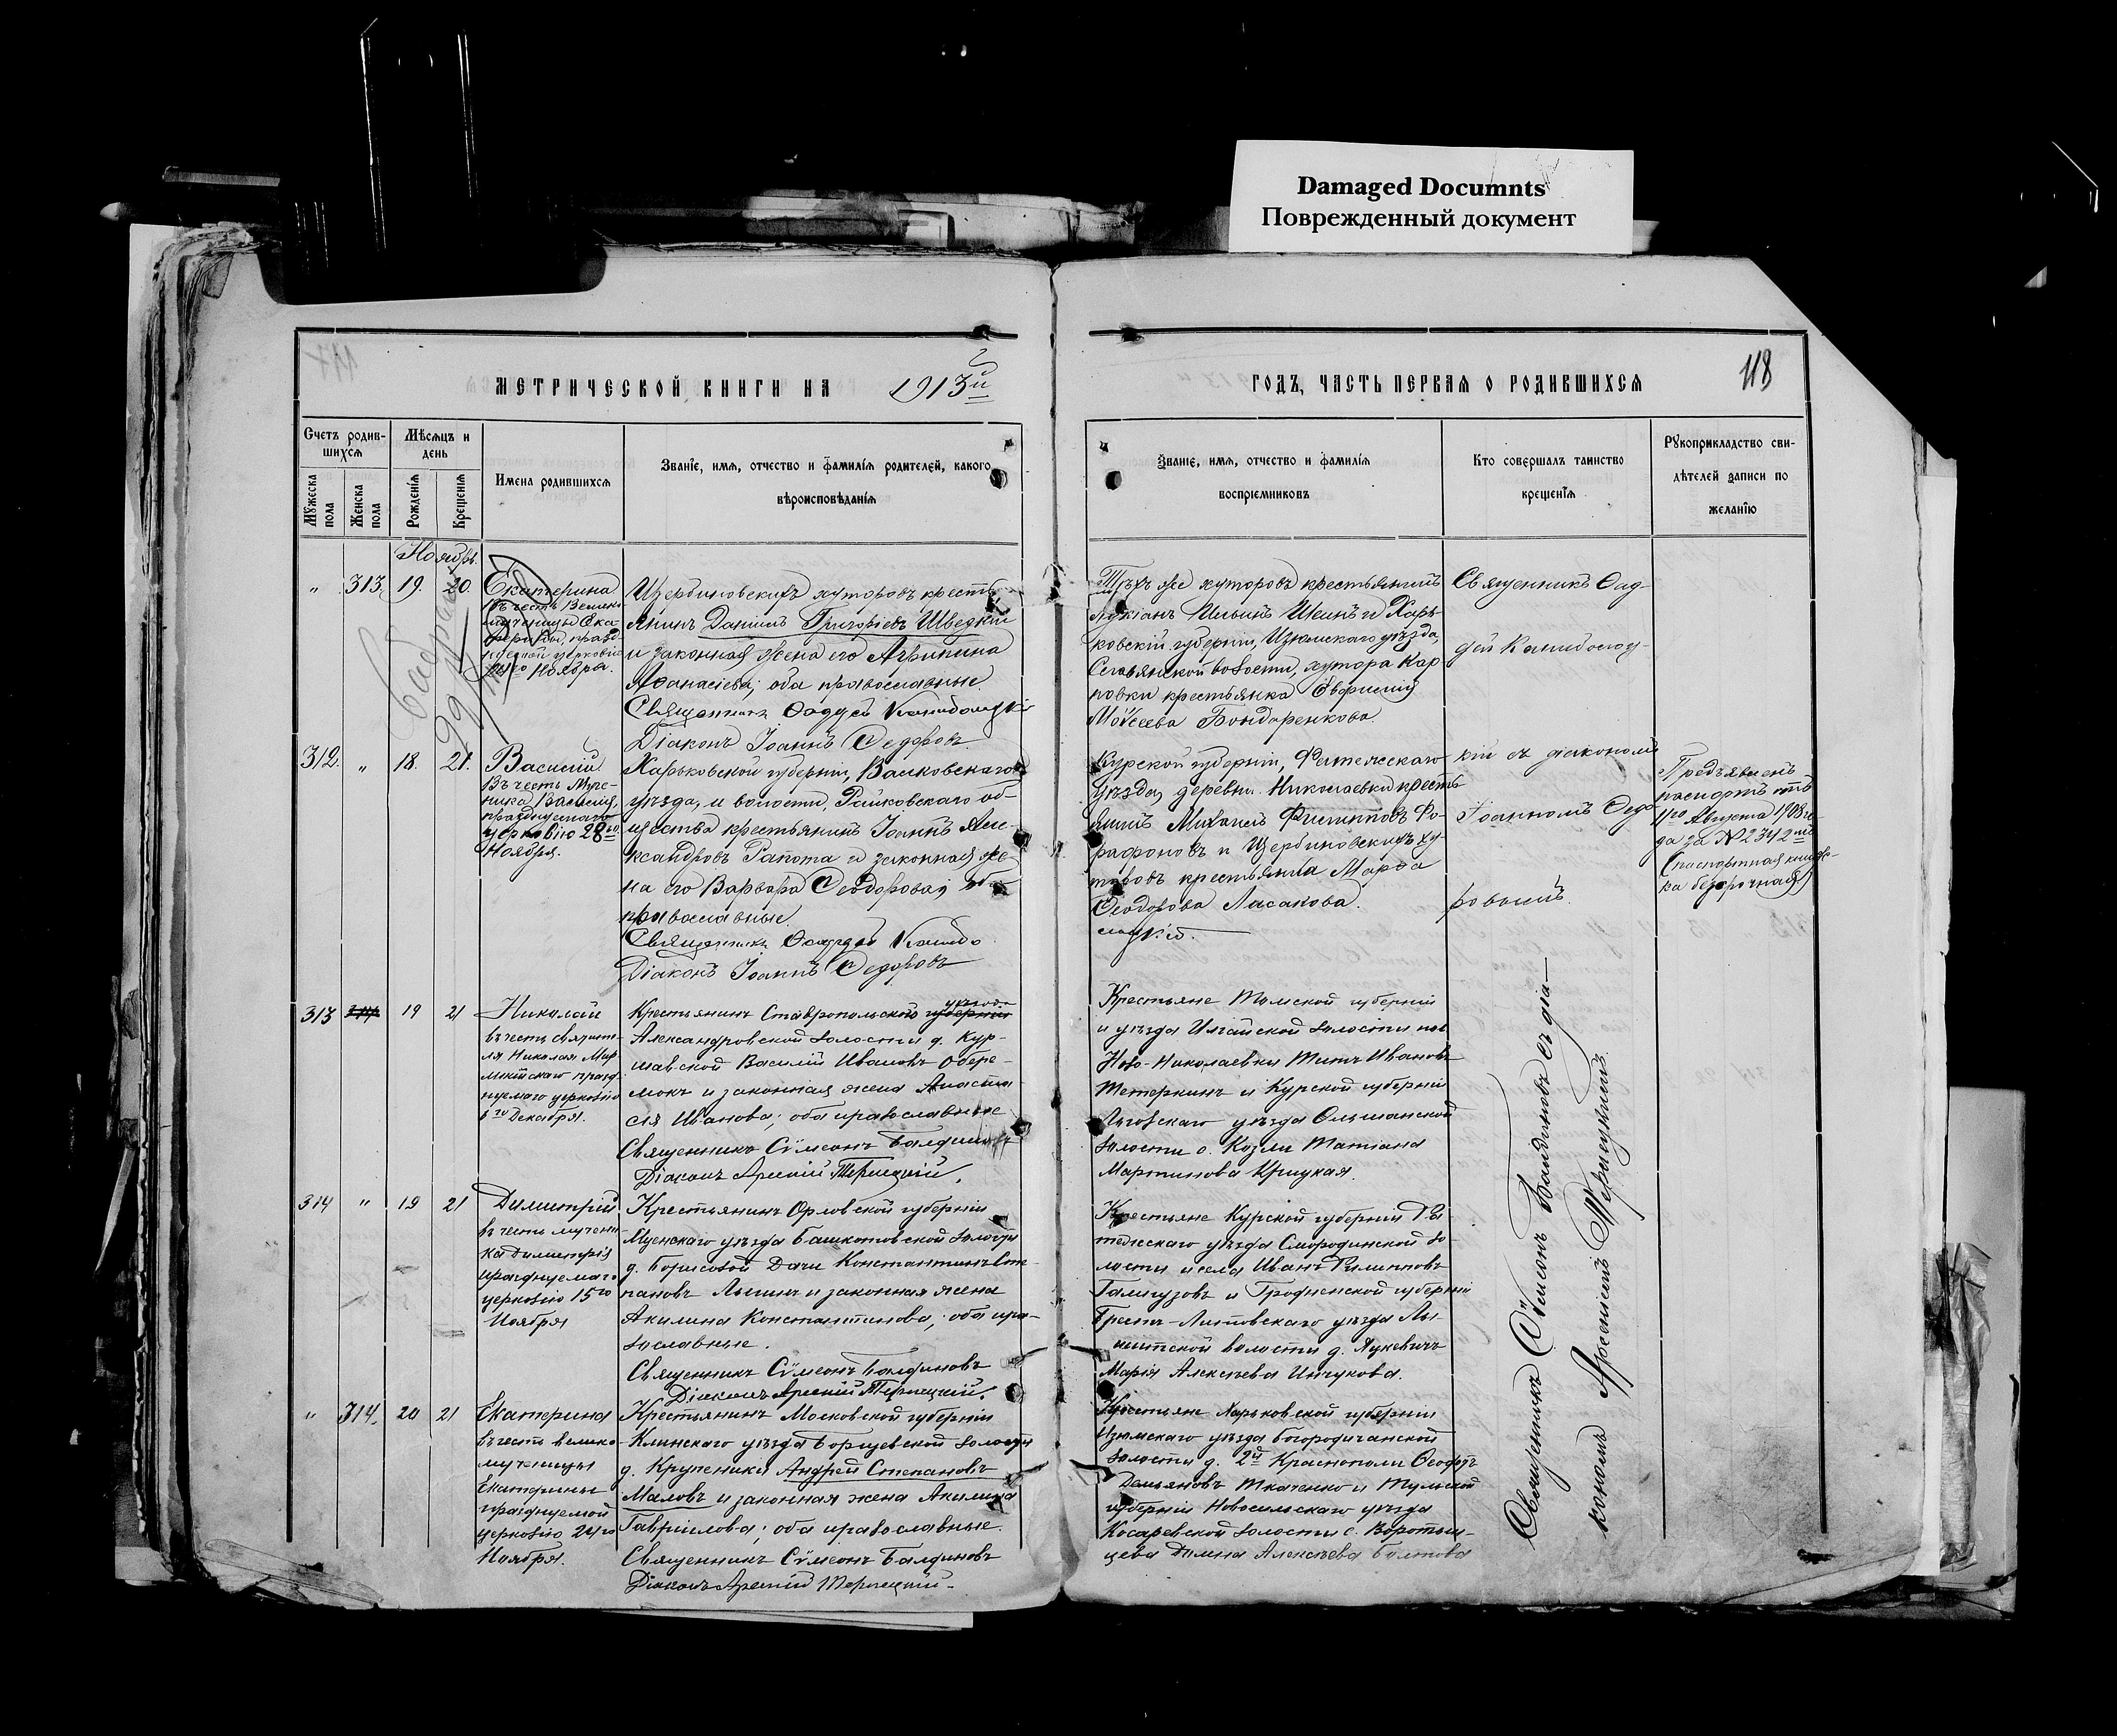 Damaged Documnts
Поврежденный документ
МЕТРИЧЕСКОЙ КНИГИ НА 1913й
ГОДЪ, ЧАСТЬ ПЕРВАЯ О РОДИВШИХСЯ
118
Счетъ родив-
шихся
Мѣсяцъ и
день
Мужеска
пола
Женска
пола
Рожденія
Крещенія
Имена родившихся
Званіе, имя, отчество и фамилія родителей, какого
вѣроисповѣданія
Званіе, имя, отчество и фамилія
воспріемниковъ
Кто совершалъ таинство
крещенія
Рукоприкладство сви-
дѣтелей записи по
желанію
Ноябрь.
" 313. 19. 20.
Екатерина
въ честь Велико-
мученицы Ека-
терины, празд-
церковію
Ноября.
Щербиновскихъ хуторовъ кресть-
янинъ Даніилъ Григорьевъ Шведкій
и законная жена его Агрипина
Аѳанасіева; оба православные.
Священникъ Ѳаддей
Діаконъ Іоаннъ Ѳедоровъ
Тѣхъ же хуторовъ крестьянинъ
Лукіанъ Ильинъ и Харь-
ковской губерніи, Изюмскаго уѣзда,
Славянской волости, хутора Кар-
повки крестьянка
Моѵсеева Бондаренкова.
Священникъ Ѳад-
дей
312. " 18. 21.
Василій
Въ честь Муче-
ника Василія,
празднуемаго
церковію 28го
Ноября.
Харьковской губерніи, Валковскаго
уѣзда, и волости, Райковскаго об-
щества крестьянинъ Іоаннъ Але-
ксандровъ Рапота и законная же-
на его Варвара Ѳеодоровая оба
православные.
Священникъ Ѳаддей
Діаконъ Іоаннъ Ѳедоровъ
Курской губерніи, Фатежскаго
уѣзда, деревни Николаевки кресть-
янинъ Михаилъ Филипповъ
и Щербиновскихъ ху-
торовъ крестьянка Марѳа
Ѳеодорова Ласакова.
кій съ діакономъ
Іоанномъ Ѳедо-
ровымъ.
Предъявленъ
паспортъ отъ
11го Августа 1908 го-
да за № 2342мъ
(паспортная книж-
ка безсрочная)
313 19 21
Николай
въ честь святите-
ля Николая Мир-
ликійскаго празд-
нуемаго церковію
6го Декабря.
Крестьянинъ Ставропольскаго уѣзда
Александровской волости д. Кур-
шавской Василій Ивановъ Обере-
мокъ и законная жена Анаста-
сія Иванова; оба православные
Священникъ Сѵмеонъ Балдиновъ
Діаконъ Арсеній Терлецкій.
Крестьяне Томской губерніи
и уѣзда волости пос.
Ново-Николаевки Титъ Ивановъ
Тетеркинъ и Курской губерніи
Льговскаго уѣзда Ольшанской
волости с. Козли Татіана
Мартинова Крицкая.
314 " 19 21
Димитрій
въ честь мучени-
ка Димитрія
празднуемаго
церковію 15го
Ноября
Крестьянинъ Орловской губерніи
Мценскаго уѣзда Башкатовской волости
д. Борисовой Дачи Константинъ Сте-
пановъ и законная жена
Акилина Константинова; оба пра-
вославные.
Священникъ Сѵмеонъ Балдиновъ
Діаконъ Арсеній Терлецкій.
Крестьяне Курской губерніи Фа-
тежскаго уѣзда Смородинской во-
лости и села Иванъ Филипповъ
Галигузовъ и Гродненской губерніи
Брестъ-Литовскаго уѣзда
волости д.
Марія Алексѣева Инчукова.
" 314. 20 21
Екатерина
въ честь велико-
мученицы
Екатерины
празднуемой
церковію 24го
Ноября.
Крестьянинъ Московской губерніи
Клинскаго уѣзда Борщевской волости
д. Крупеники Андрей Степановъ
Маловъ и законная жена Акилина
Гавріилова; оба православные.
Священникъ Сѵмеонъ Балдиновъ
Діаконъ Арсеній Терлецкій.
Крестьяне Харьковской губерніи
Изюмскаго уѣзда Богородичанской
волости д. 2й Краснополи
Демьяновъ Ткаченко и Тульской
губерніи Новосильскаго уѣзда
Косаревской волости с. Воротын-
цева Алексѣева
Священникъ Сѵмеонъ Балдиновъ съ діа-
кономъ Арсеніемъ Терлецкимъ.